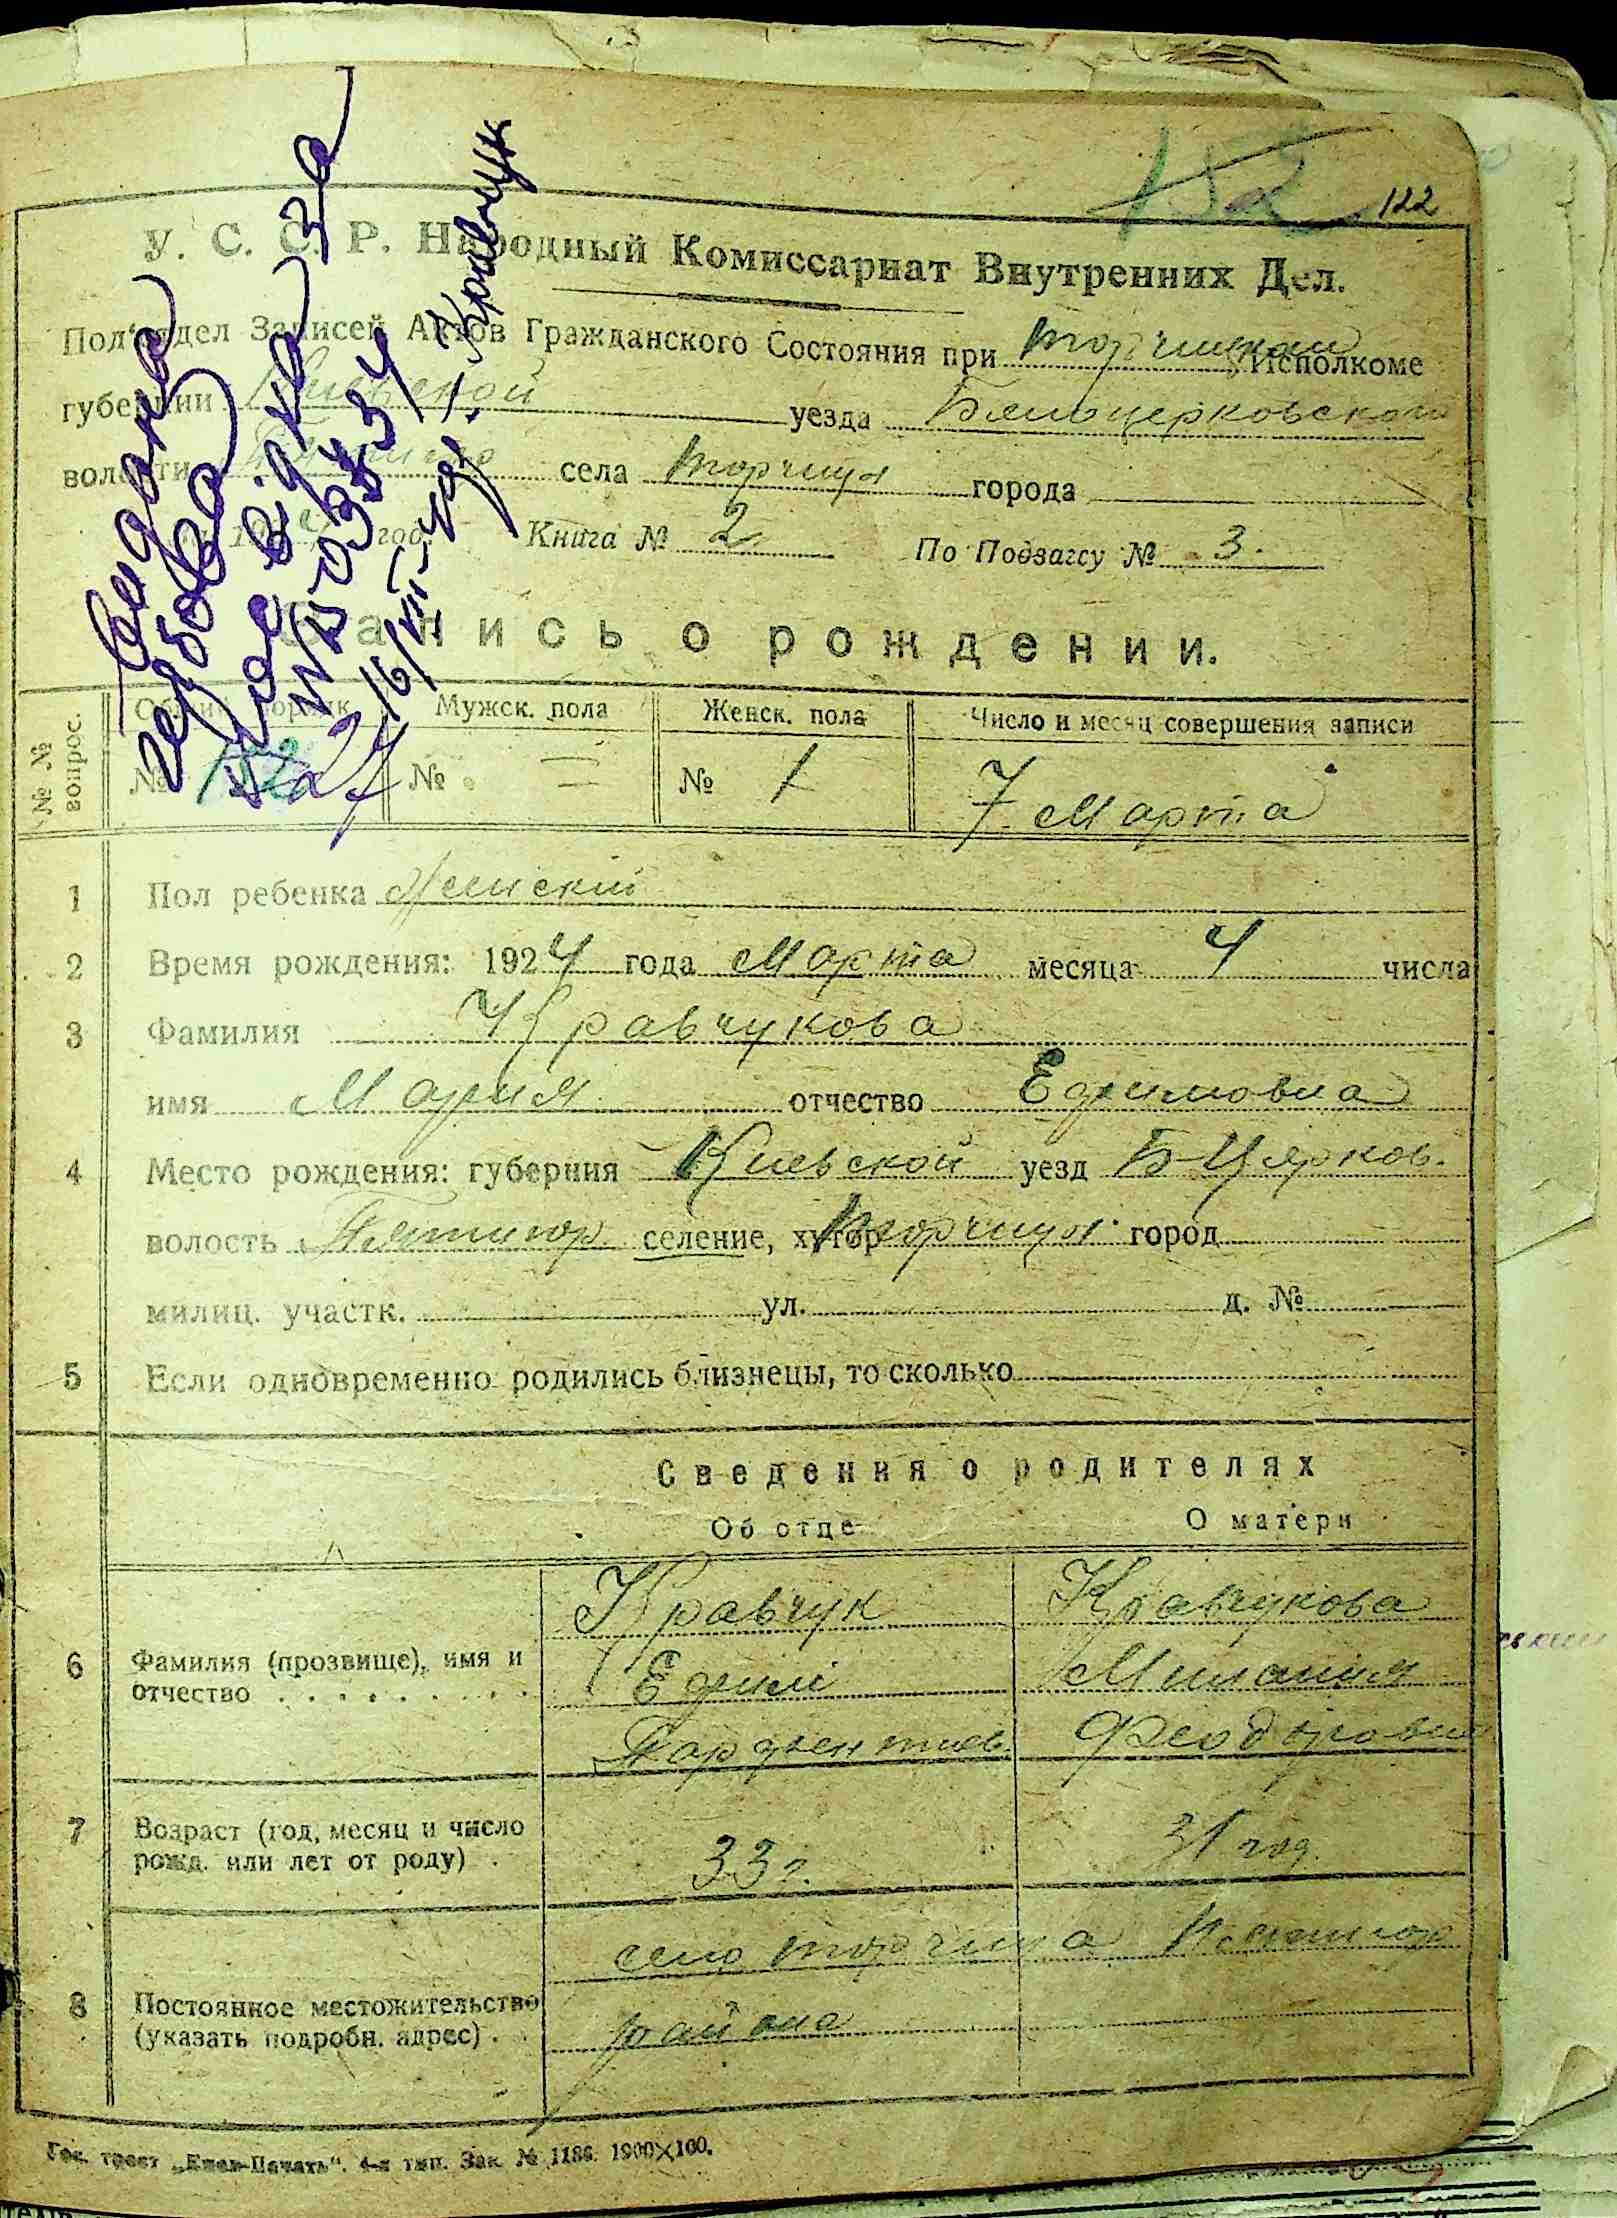 122
У. С. С. Р. Народный Комиссариат Внутренних Дел.
Под'отдел Записей Актов Гражданского Состояния при Исполкоме
губернии Киевской уезда Бялоцерковского
волости села Торчиця города
192 год. Книга № 2 По Подзагсу № 3.
Запись о рождении.
№ № вопрос. Общий порядк. Мужск. пола Женск. пола Число и месяц совершения записи
№ 132 № = № 1 7 Марта
1 Пол ребенка Женский
2 Время рождения: 1924 года Марта месяца 4 числа
3 Фамилия Кравчукова
имя Мария отчество Ефимовна
4 Место рождения: губерния Киевской уезд Б-Цярков.
волость Пятигор. селение, хутор Торчиця город
милиц. участк. ул. д. №
5 Если одновременно родились близнецы, то сколько
Сведения о родителях
Об отце О матери
6 Фамилия (прозвище), имя и отчество Кравчук Кравчукова
Ефим Миланія
Парфентиев. Феодоровна
7 Возраст (год, месяц и число рожд. или лет от роду) 33 г. 31 год.
8 Постоянное местожительство (указать подробн. адрес) село Торчица Пятигор
района
Гос. трест „Киев-Печать“. 4-я тип. Зак. № 1186. 1900×100.